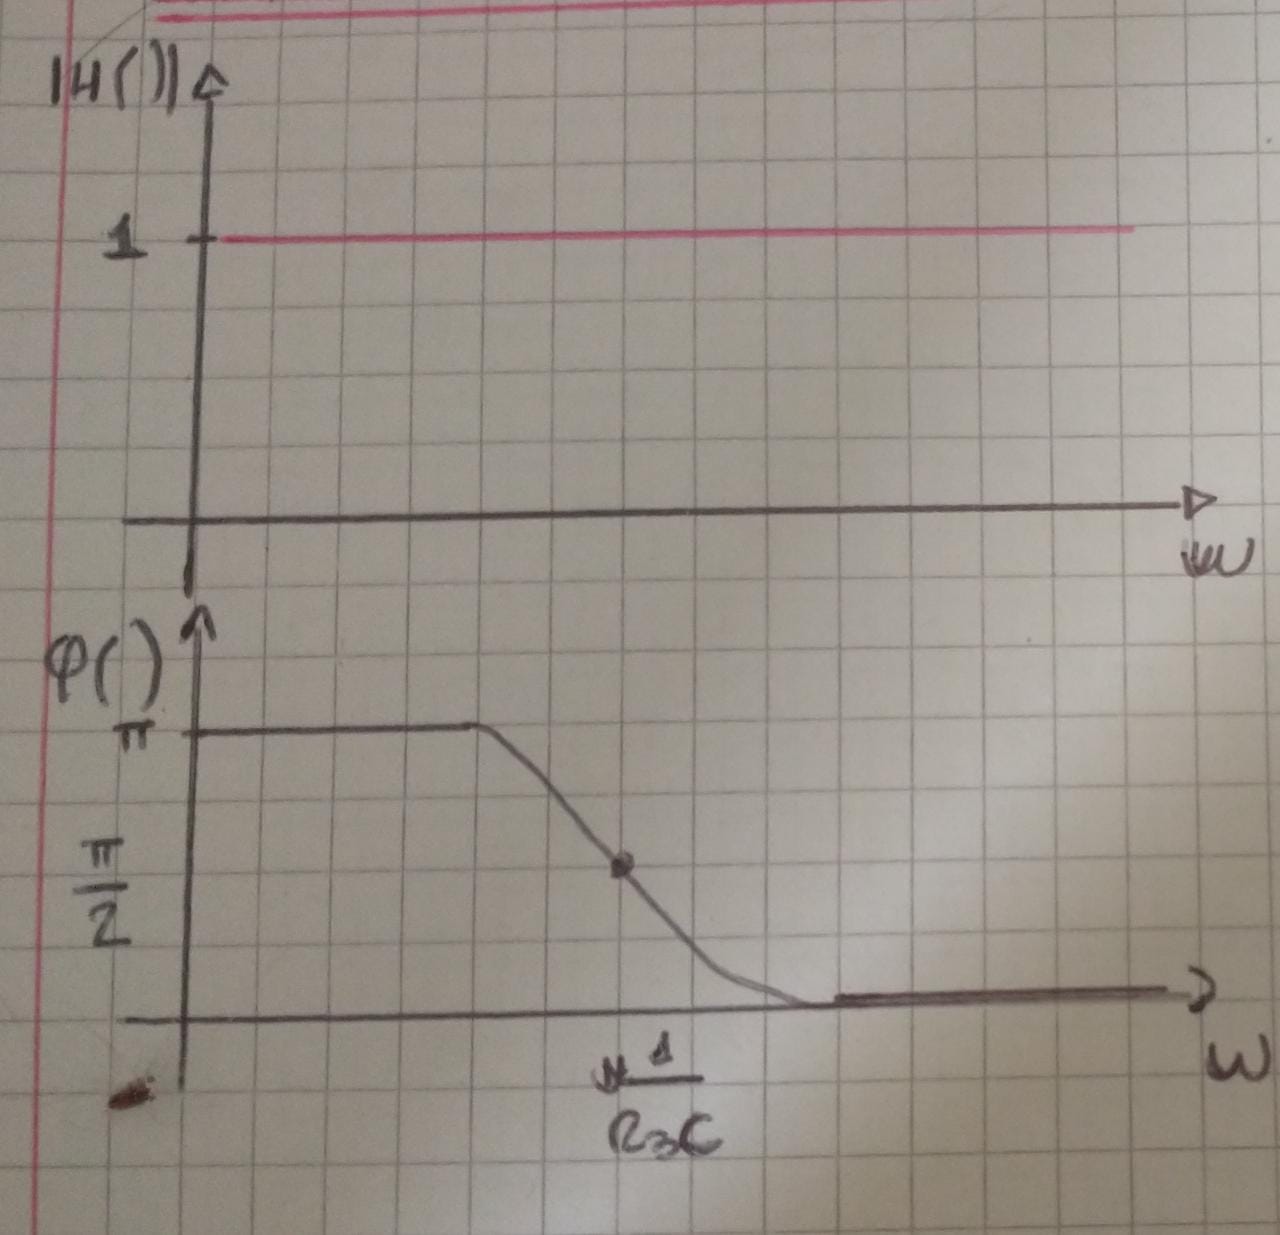 |H()|
1
ω
φ()
π
π
2
1
R₃C
ω